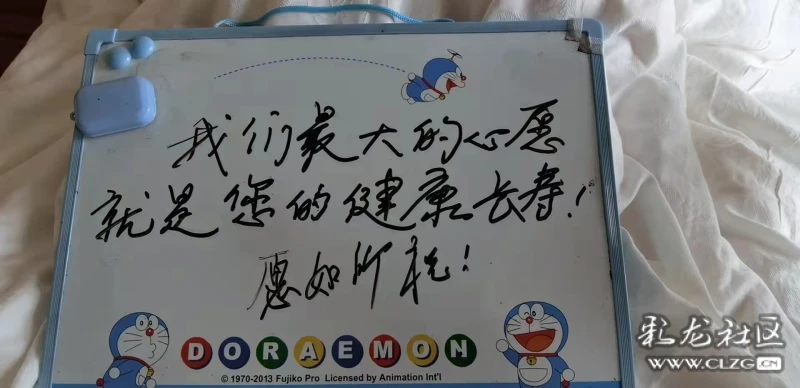 我们最大的心愿
就是您的健康长寿!
愿如所祝!
DORAEMON
© 1970-2013 Fujiko Pro Licensed by Animation Int'l
彩龙社区
WWW.CLZG.CN